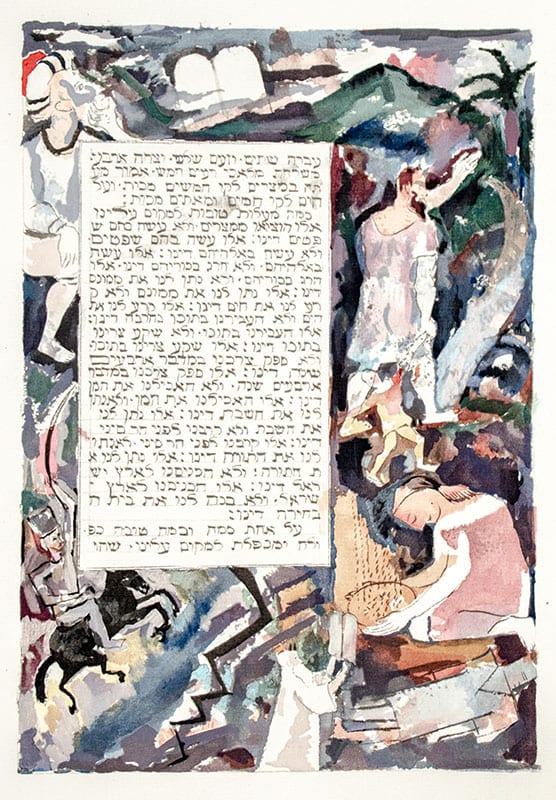 עברה שתים · וזעם שלש · וצרה ארבע ·
משלחת מלאכי רעים חמש · אמור מע
תה במצרים לקו חמשים מכות · ועל
הים לקו חמים ומאתים מכות :
כמה מעלות טובות למקום עלינו
אלו הוציאנו ממצרים · ולא עשה בהם ש
פטים דינו : אלו עשה בהם שפטים
ולא עשה באלהיהם דינו : אלו עשה
באלהיהם · ולא הרג בכוריהם דינו · אלו
הרג בכוריהם · ולא נתן לנו את ממונם
דינו : אלו נתן לנו את ממונם ולא ק
רע לנו את הים דינו : אלו קרע לנו את
הים ולא העבירנו בתוכו בחרבה דינו
אלו העבירנו בתוכו · ולא שקע צרינו
בתוכו דינו : אלו שקע צרינו בתוכו
ולא ספק צרכנו במדבר ארבעים
שנה דינו : אלו ספק צרכנו במדבר
ארבעים שנה · ולא האכילנו את המן
דינו : אלו האכילנו את המן · ולא נתן
לנו את השבת דינו : אלו נתן לנו
את השבת ולא קרבנו לפני הר סיני
דינו : אלו קרבנו לפני הר סיני · ולא נתן
לנו את התורה דינו : אלו נתן לנו א
ת התורה : ולא הכניסנו לארץ יש
ראל דינו : אלו הכניסנו לארץ י
שראל · ולא בנה לנו את בית ה
בחירה דינו :
על אחת כמה וכמה טובה כפ
לה ומכפלת למקום עלינו · שהו